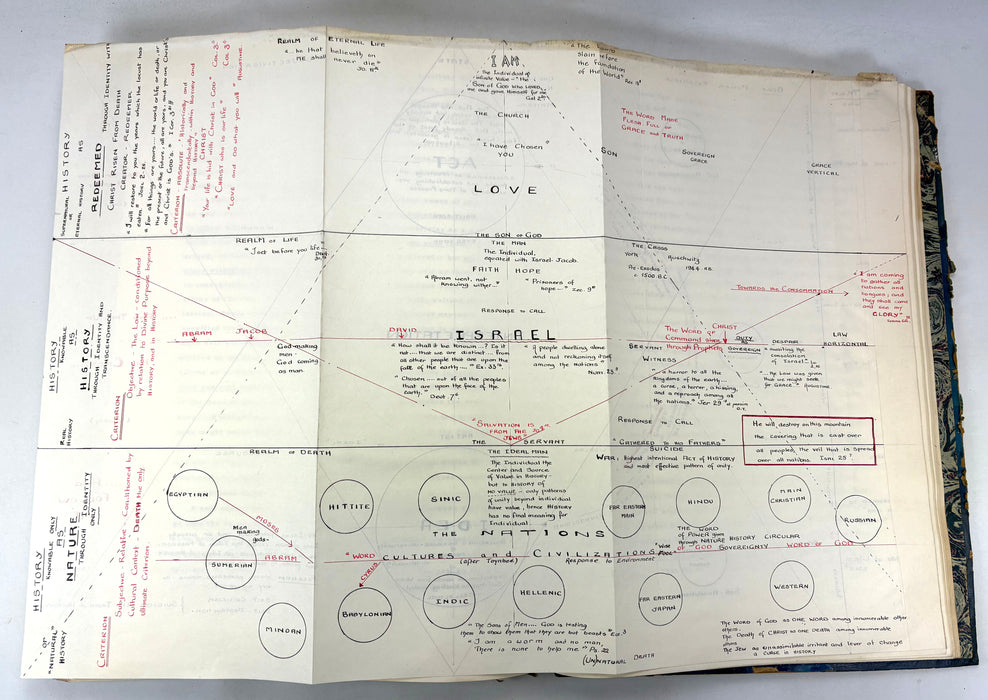 SUPERNATURAL HISTORY
OR
ETERNAL HISTORY
AS
REDEEMED THROUGH IDENTITY WITH
CHRIST RISEN FROM DEATH
CREATOR - REDEEMER.
"I will restore to you the years which the locust has
eaten" Joel 2.
"For all things are yours... the world or life or death, or
the present or the future; all are yours; and you are Christ's
and Christ is God's." 1 Cor. 3
CRITERION ABSOLUTE - "Historically and
transcendentally - within History and
beyond History"
CHRIST
"Your life is hid with Christ in God" Col. 3
"Christ who is our life" Col. 3
"Love and do what you will" Augustine.
REALM OF ETERNAL LIFE
"... he that believeth on
ME shall never die"
I AM
The Individual of
Infinite Value - the
Son of God who loved
me and gave Himself for me
Gal 2
THE CHURCH
"I have Chosen"
YOU
LOVE
"The Lamb
slain before
the foundation
of the World" Rev.
THE WORD MADE
FLESH FULL OF
GRACE and TRUTH
SON
SOVEREIGN
GRACE
GRACE
VERTICAL
THE SON OF GOD
REAL
HISTORY
HISTORY
KNOWABLE
AS
HISTORY
THROUGH IDENTITY AND
TRANSCENDENCE.
CRITERION
Objective - The Law conditioned
by relation to Divine Purpose beyond
History, and in History
REALM OF LIFE
"I set before you life -
ABRAM JACOB
God making
men -
God coming
as man.
THE MAN
The Individual,
equated with Israel. Jacob.
FAITH HOPE
"Abram went, not
knowing wither..."
"Prisoners of
hope -" Zec. 9
RESPONSE TO CALL
DAVID
ISRAEL
"How shall it be known...? Is it
not... that we are distinct... from
all other people that are upon the
face of the earth -" Ex. 33
"Chosen .... out of all the peoples
that are upon the face of the
earth." Deut 7
"A people dwelling alone
and not reckoning itself
among the nations"
Num. 23
"SALVATION IS
FROM THE
JEWS"
THE SERVANT
THE CROSS
York Auschwitz
1944 - 45.
Re. Exodus
c. 1500. B.C.
TOWARDS THE CONSUMMATION
"I am coming
to gather all
nations and
tongues; and
they shall come
and see my
GLORY"
CHRIST
The Word of
Command given
through Prophets
SERVANT
WITNESS
DUTY
SOVEREIGN
DESPAIR
LAW
HORIZONTAL
"awaiting the
consolation
of Israel"
"... the Law was given
that we might seek
for Grace" Augustine
"a horror to all the
Kingdoms of the earth...
a curse, a horror, a hissing,
and a reproach among all
the nations." Jer 29
RESPONSE TO CALL
"GATHERED TO HIS FATHERS"
He will destroy on this mountain
the covering that is cast over
all peoples, the veil that is spread
over all nations. Isai. 25
"NATURAL"
HISTORY
OR
HISTORY
KNOWABLE ONLY
AS
NATURE
THROUGH IDENTITY
ONLY
CRITERION
Subjective - Relative - Conditioned by
Cultural Context - DEATH the only
Ultimate Criterion
REALM OF DEATH
EGYPTIAN
MOSES
Men
making
gods -
SUMERIAN
ABRAM
MINOAN
HITTITE
SINIC
THE IDEAL MAN
The Individual the
Center and Source
of Value in History -
but to HISTORY of
NO VALUE - only patterns
of unity beyond individual
have value, hence HISTORY
has no final meaning for
Individual.
SUICIDE
WAR. highest intentional ACT of HISTORY
and most effective pattern of unity.
FAR EASTERN
MAIN
HINDU
MAIN
CHRISTIAN
RUSSIAN
THE NATIONS
THE WORD
OF POWER given
through NATURE
HISTORY CIRCULAR
"WORD
CULTURES and CIVILIZATIONS
(after Toynbee)
Response to Environment
OF GOD SOVEREIGNTY WORD OF GOD
CYRUS
BABYLONIAN
INDIC
HELLENIC
FAR EASTERN
JAPAN
WESTERN
"The Sons of Men.... God is testing
them to show them that they are but beasts" Ecc. 3
"I am a worm and no man,
There is none to help me" Ps. 22
(UN)NATURAL DEATH
The Word of God as ONE WORD among innumerable other
others.
The Death of CHRIST as ONE DEATH among innumerable
The Jew as Unassimilable irritant and lever of Change
A CURSE IN HISTORY